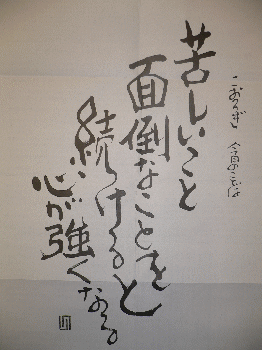 こおろぎ
苦しいこと
面倒なことを
続けると
心が強くなる